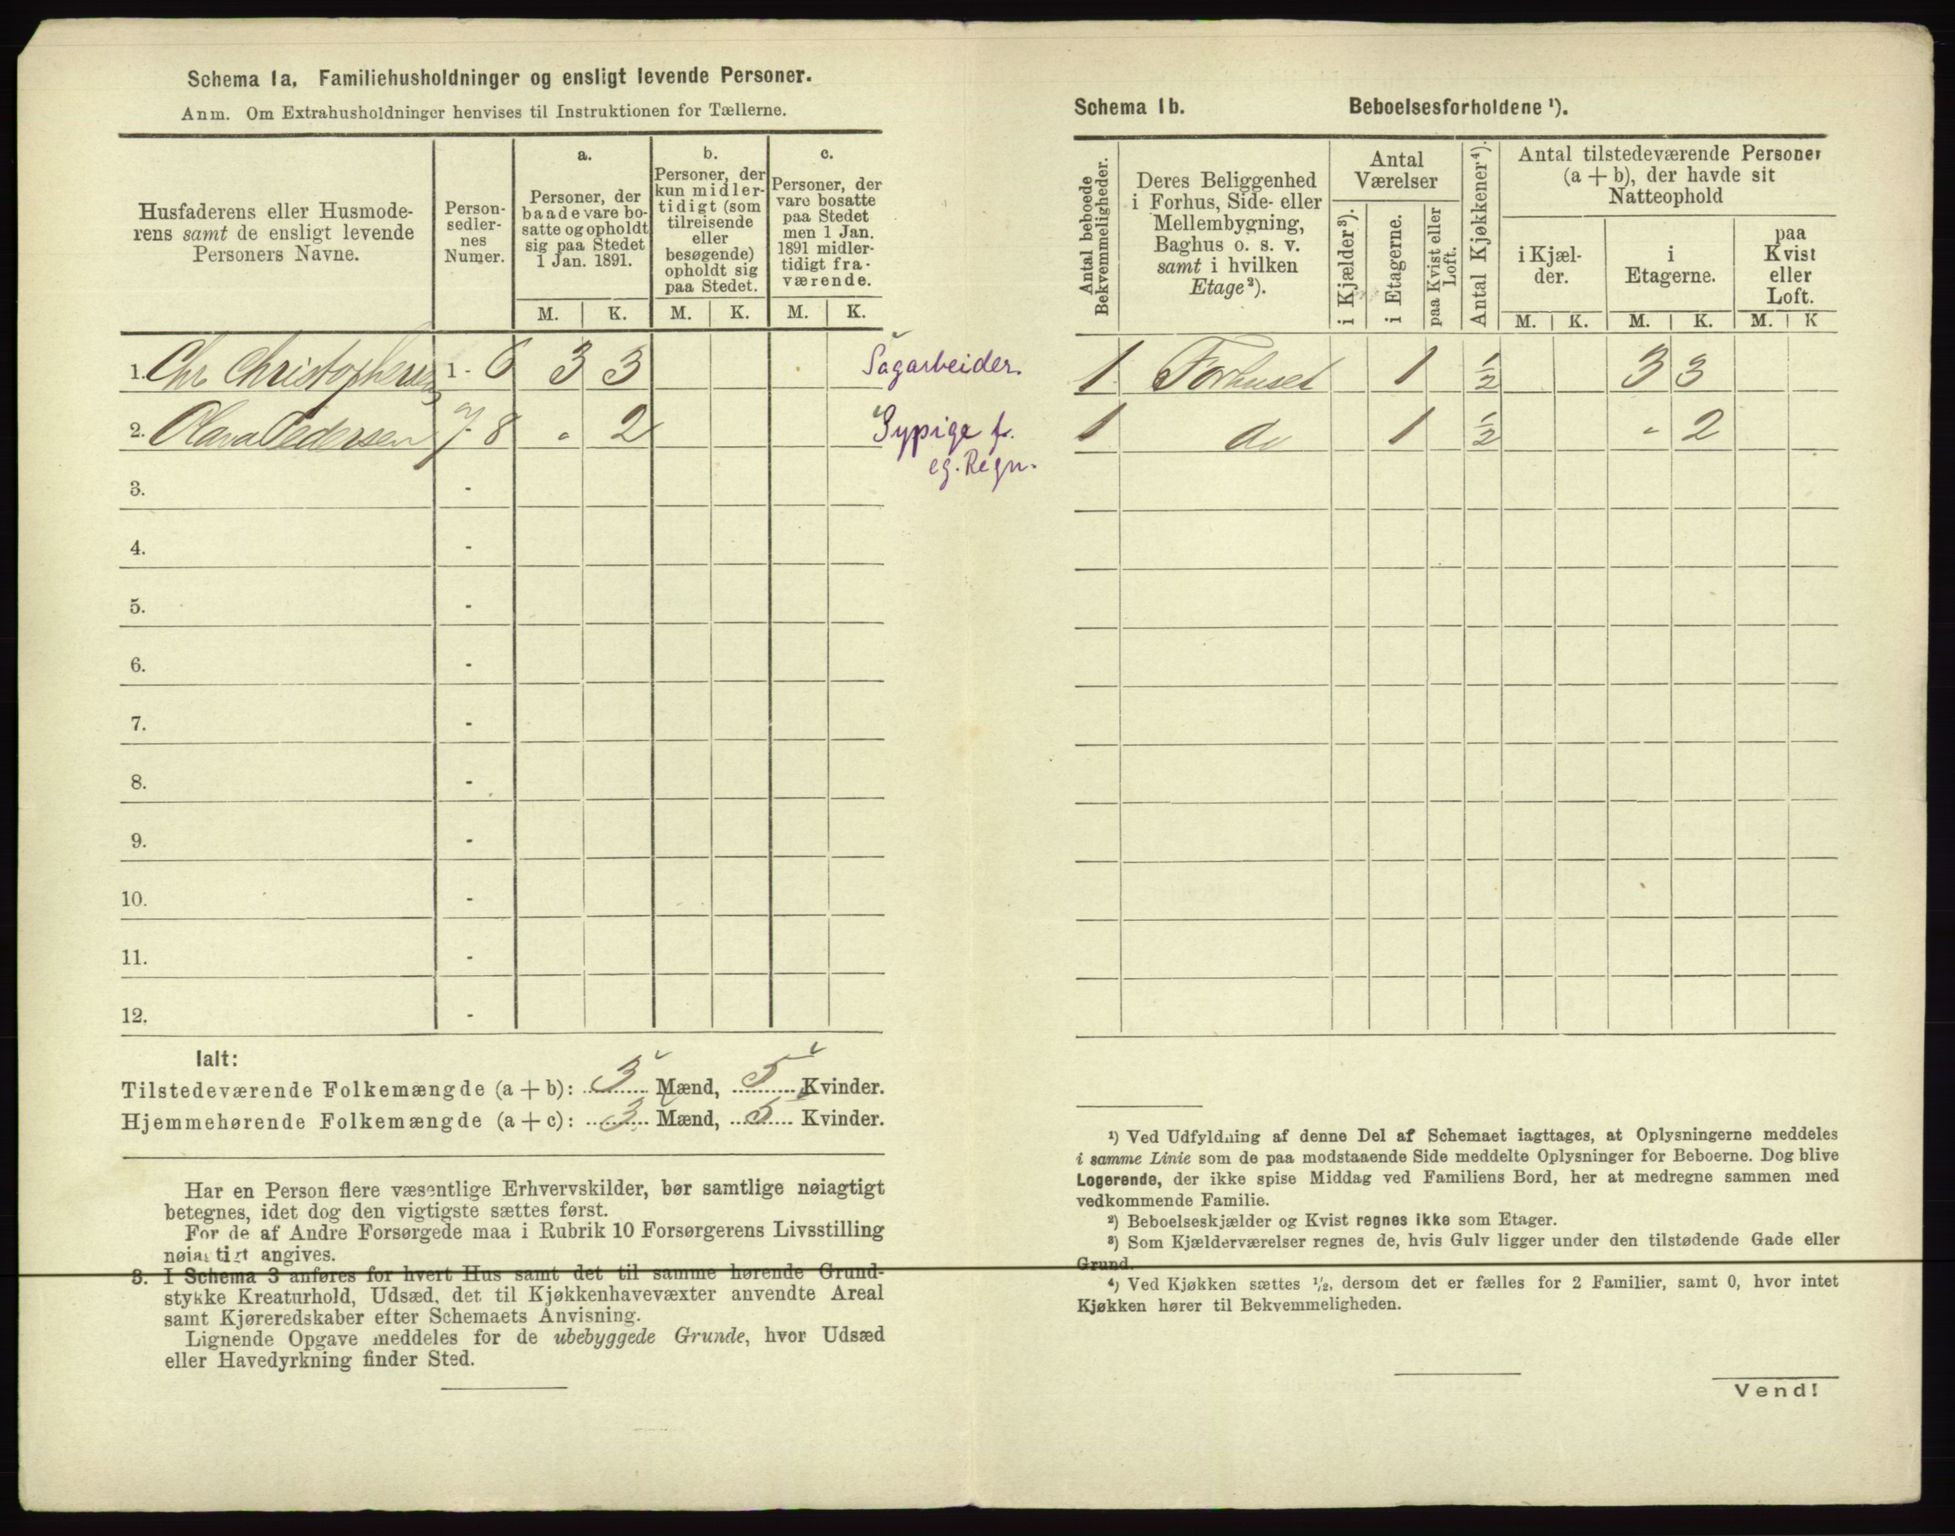 Schema 1a. Familiehusholdninger og ensligt levende Personer.
Anm. Om Extrahusholdninger henvises til Instruktionen for Tællerne.
Husfaderens eller Husmode-
rens samt de ensligt levende
Personers Navne.
Person-
sedler-
nes
Numer.
a.
Personer, der
baade vare bo-
satte og opholdt
sig paa Stedet
1 Jan. 1891.
b.
Personer, der
kun midler-
tidigt (som
tilreisende
eller
besøgende)
opholdt sig
paa Stedet.
c.
Personer, der
vare bosatte
paa Stedet
men 1 Jan.
1891 midler-
tidigt fra-
værende.
M. K. M. K. M. K.
1. Chr. Christophersen 1 - 6 3 3 Sagarbeider.
2. Olava Pedersen 7 - 8 " 2 Sypige f.
eg. Regn.
3. -
4. -
5. -
6. -
7. -
8. -
9. -
10. -
11. -
12. -
Ialt:
Tilstedeværende Folkemængde (a + b): 3 Mænd, 5 Kvinder.
Hjemmehørende Folkemængde (a + c): 3 Mænd, 5 Kvinder.
Har en Person flere væsentlige Erhvervskilder, bør samtlige nøiagtigt
betegnes, idet dog den vigtigste sættes først.
For de af Andre Forsørgede maa i Rubrik 10 Forsørgerens Livsstilling
nøiagtigt angives.
3. I Schema 3 anføres for hvert Hus samt det til samme hørende Grund-
stykke Kreaturhold, Udsæd, det til Kjøkkenhavevæxter anvendte Areal
samt Kjøreredskaber efter Schemaets Anvisning.
Lignende Opgave meddeles for de ubebyggede Grunde, hvor Udsæd
eller Havedyrkning finder Sted.
Schema 1b. Beboelsesforholdene ¹).
Antal beboede
Bekvemmeligheder.
Deres Beliggenhed
i Forhus, Side- eller
Mellembygning,
Baghus o. s. v.
samt i hvilken
Etage²).
Antal
Værelser
i Kjælder³).
i Etagerne.
paa Kvist eller
Loft.
Antal Kjøkkener⁴).
Antal tilstedeværende Personer
(a + b), der havde sit
Natteophold
i Kjæl-
der.
i
Etagerne.
paa
Kvist
eller
Loft.
M. K. M. K. M. K
1 Forhuset 1 ½ 3 3
1 do 1 ½ " 2
¹) Ved Udfyldning af denne Del af Schemaet iagttages, at Oplysningerne meddeles
i samme Linie som de paa modstaaende Side meddelte Oplysninger for Beboerne. Dog blive
Logerende, der ikke spise Middag ved Familiens Bord, her at medregne sammen med
vedkommende Familie.
²) Beboelseskjælder og Kvist regnes ikke som Etager.
³) Som Kjælderværelser regnes de, hvis Gulv ligger under den tilstødende Gade eller
Grund.
⁴) Ved Kjøkken sættes ½, dersom det er fælles for 2 Familier, samt 0, hvor intet
Kjøkken hører til Bekvemmeligheden.
Vend!